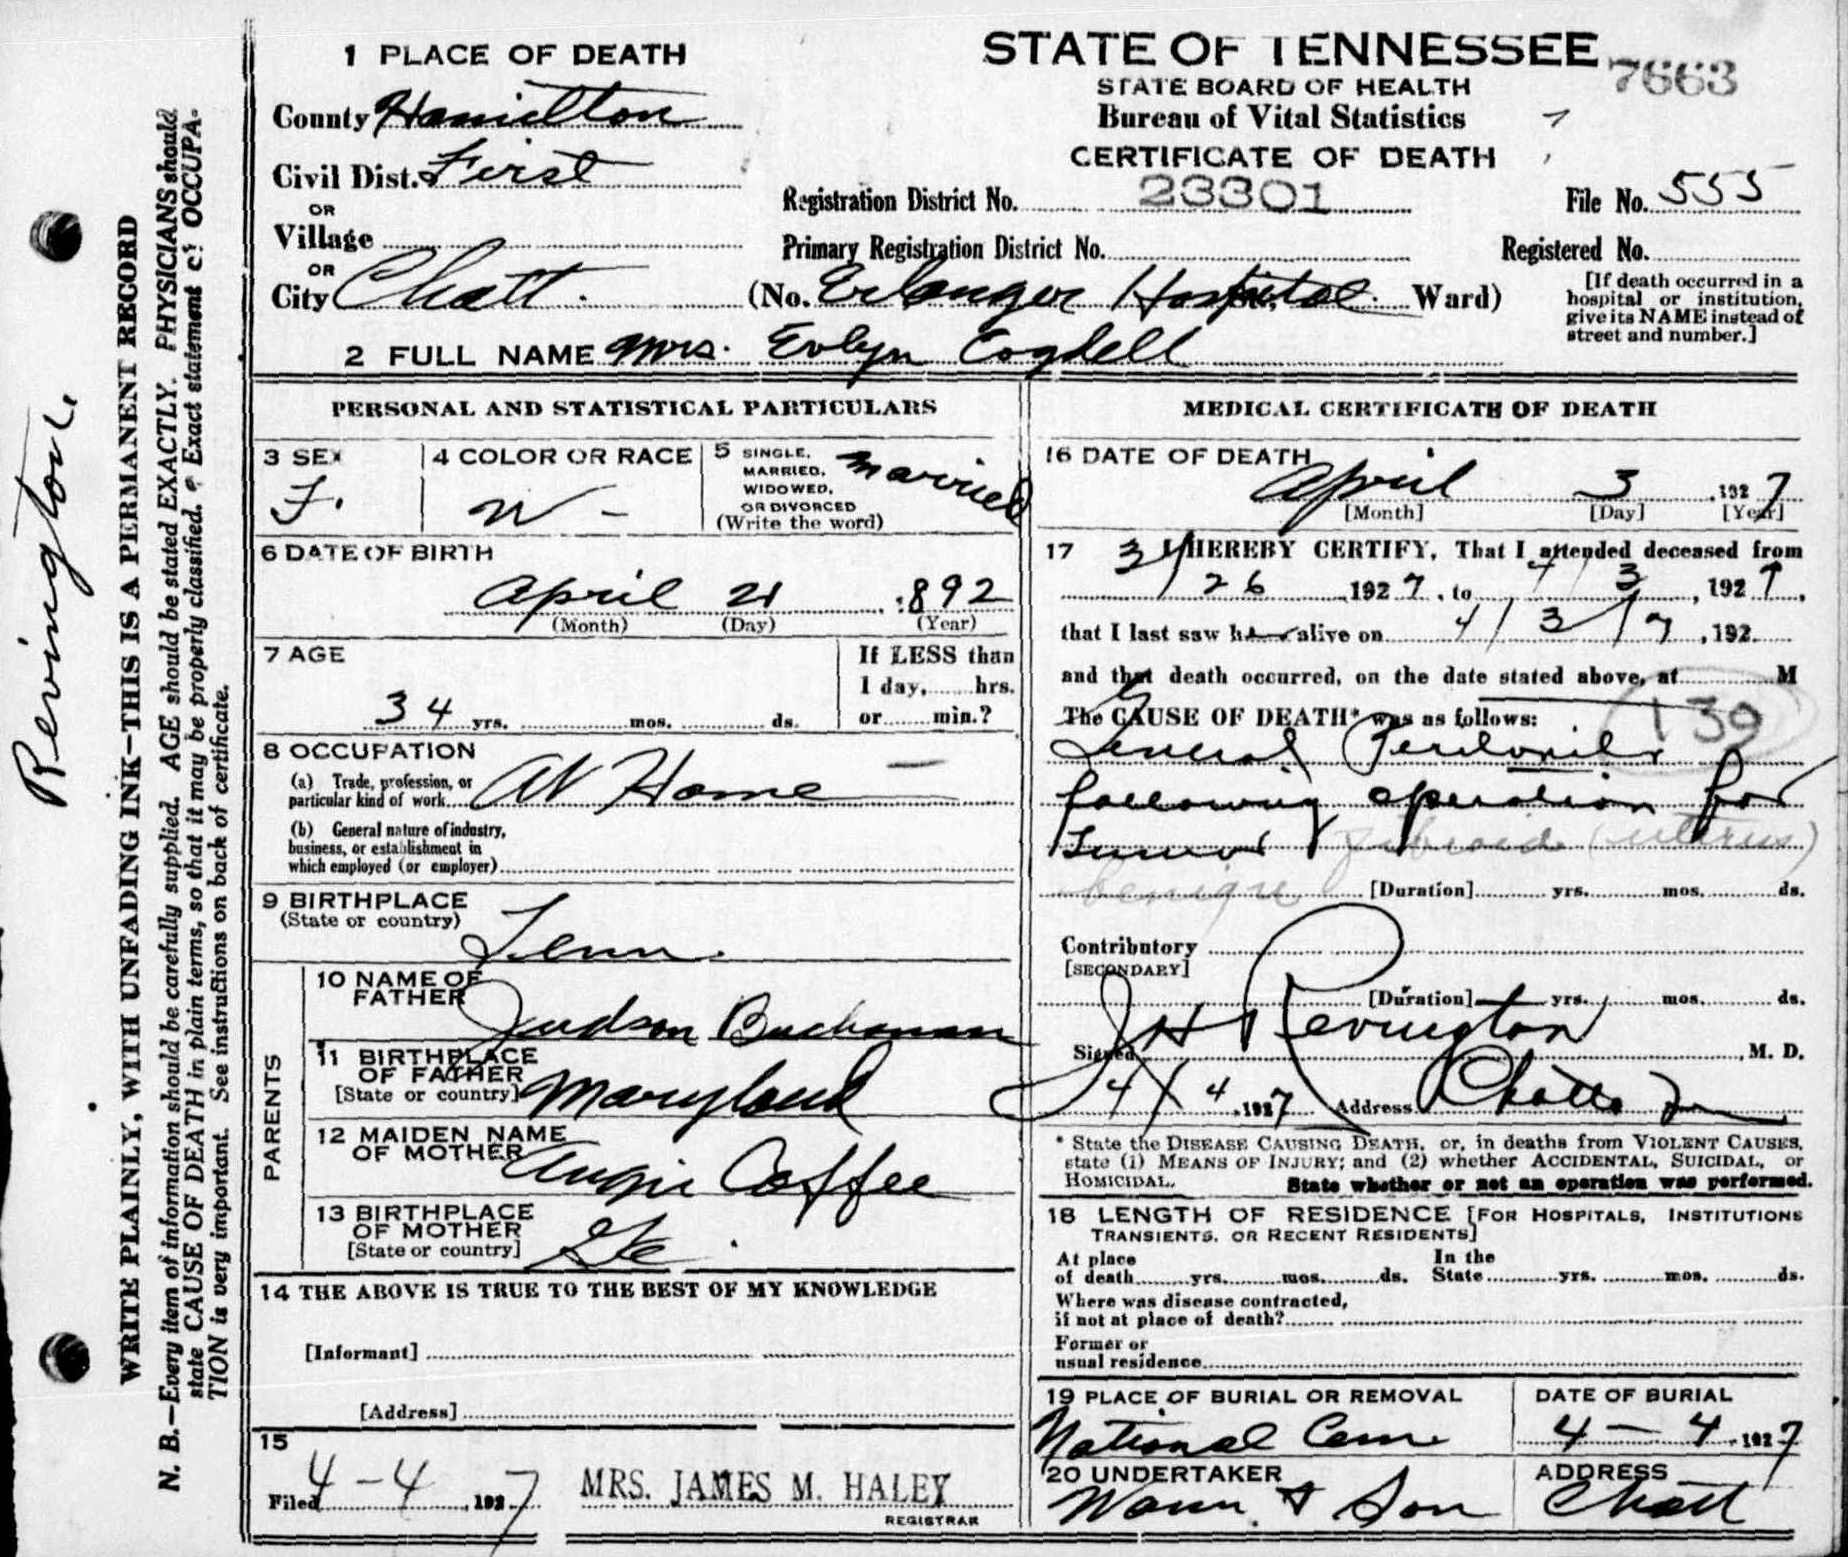 1 PLACE OF DEATH
STATE OF TENNESSEE
7663
STATE BOARD OF HEALTH
Bureau of Vital Statistics
CERTIFICATE OF DEATH
County Hamilton
Civil Dist. First
OR
Village
OR
City Chatt.
Registration District No. 23301
File No. 555
Primary Registration District No.
Registered No.
(No. Erlanger Hospital. Ward)
[If death occurred in a
hospital or institution,
give its NAME instead of
street and number.]
2 FULL NAME Mrs. Evlyn Cogdell
PERSONAL AND STATISTICAL PARTICULARS
3 SEX
F.
4 COLOR OR RACE
W -
5 SINGLE,
MARRIED,
WIDOWED,
OR DIVORCED
(Write the word)
Married
6 DATE OF BIRTH
April 21 , 892
(Month) (Day) (Year)
7 AGE
34 yrs. mos. ds.
If LESS than
1 day, hrs.
or min.?
8 OCCUPATION
(a) Trade, profession, or
particular kind of work At Home
(b) General nature of industry,
business, or establishment in
which employed (or employer)
9 BIRTHPLACE
(State or country)
Tenn.
PARENTS
10 NAME OF
FATHER
Judson Buchanan
11 BIRTHPLACE
OF FATHER
[State or country]
Maryland
12 MAIDEN NAME
OF MOTHER
Angie Coffee
13 BIRTHPLACE
OF MOTHER
[State or country]
Ga.
14 THE ABOVE IS TRUE TO THE BEST OF MY KNOWLEDGE
[Informant]
[Address]
15
Filed 4-4, 1927
MRS. JAMES M. HALEY
REGISTRAR
MEDICAL CERTIFICATE OF DEATH
16 DATE OF DEATH
April 3, 1927
[Month] [Day] [Year]
17 I HEREBY CERTIFY, That I attended deceased from
3/26 1927, to 4/3, 1927,
that I last saw her alive on 4/3/7, 192
and that death occurred, on the date stated above, at M
The CAUSE OF DEATH* was as follows:
139
General Peritonitis
following operation for
Tumor fibroid (uterus)
benign [Duration] yrs. mos. ds.
Contributory
[SECONDARY]
[Duration] yrs. mos. ds.
Signed J H Revington, M. D.
4/4, 1927 Address Chatta Tn
* State the DISEASE CAUSING DEATH, or, in deaths from VIOLENT CAUSES,
state (1) MEANS OF INJURY; and (2) whether ACCIDENTAL, SUICIDAL, or
HOMICIDAL. State whether or not an operation was performed.
18 LENGTH OF RESIDENCE [FOR HOSPITALS, INSTITUTIONS
TRANSIENTS, OR RECENT RESIDENTS]
At place In the
of death yrs. mos. ds. State yrs. mos. ds.
Where was disease contracted,
if not at place of death?
Former or
usual residence
19 PLACE OF BURIAL OR REMOVAL
National Cem
DATE OF BURIAL
4 - 4, 1927
20 UNDERTAKER
Wann & Son
ADDRESS
Chatt
Revington
WRITE PLAINLY, WITH UNFADING INK—THIS IS A PERMANENT RECORD
N. B.—Every item of information should be carefully supplied. AGE should be stated EXACTLY. PHYSICIANS should
state CAUSE OF DEATH in plain terms, so that it may be properly classified. Exact statement of OCCUPA-
TION is very important. See instructions on back of certificate.